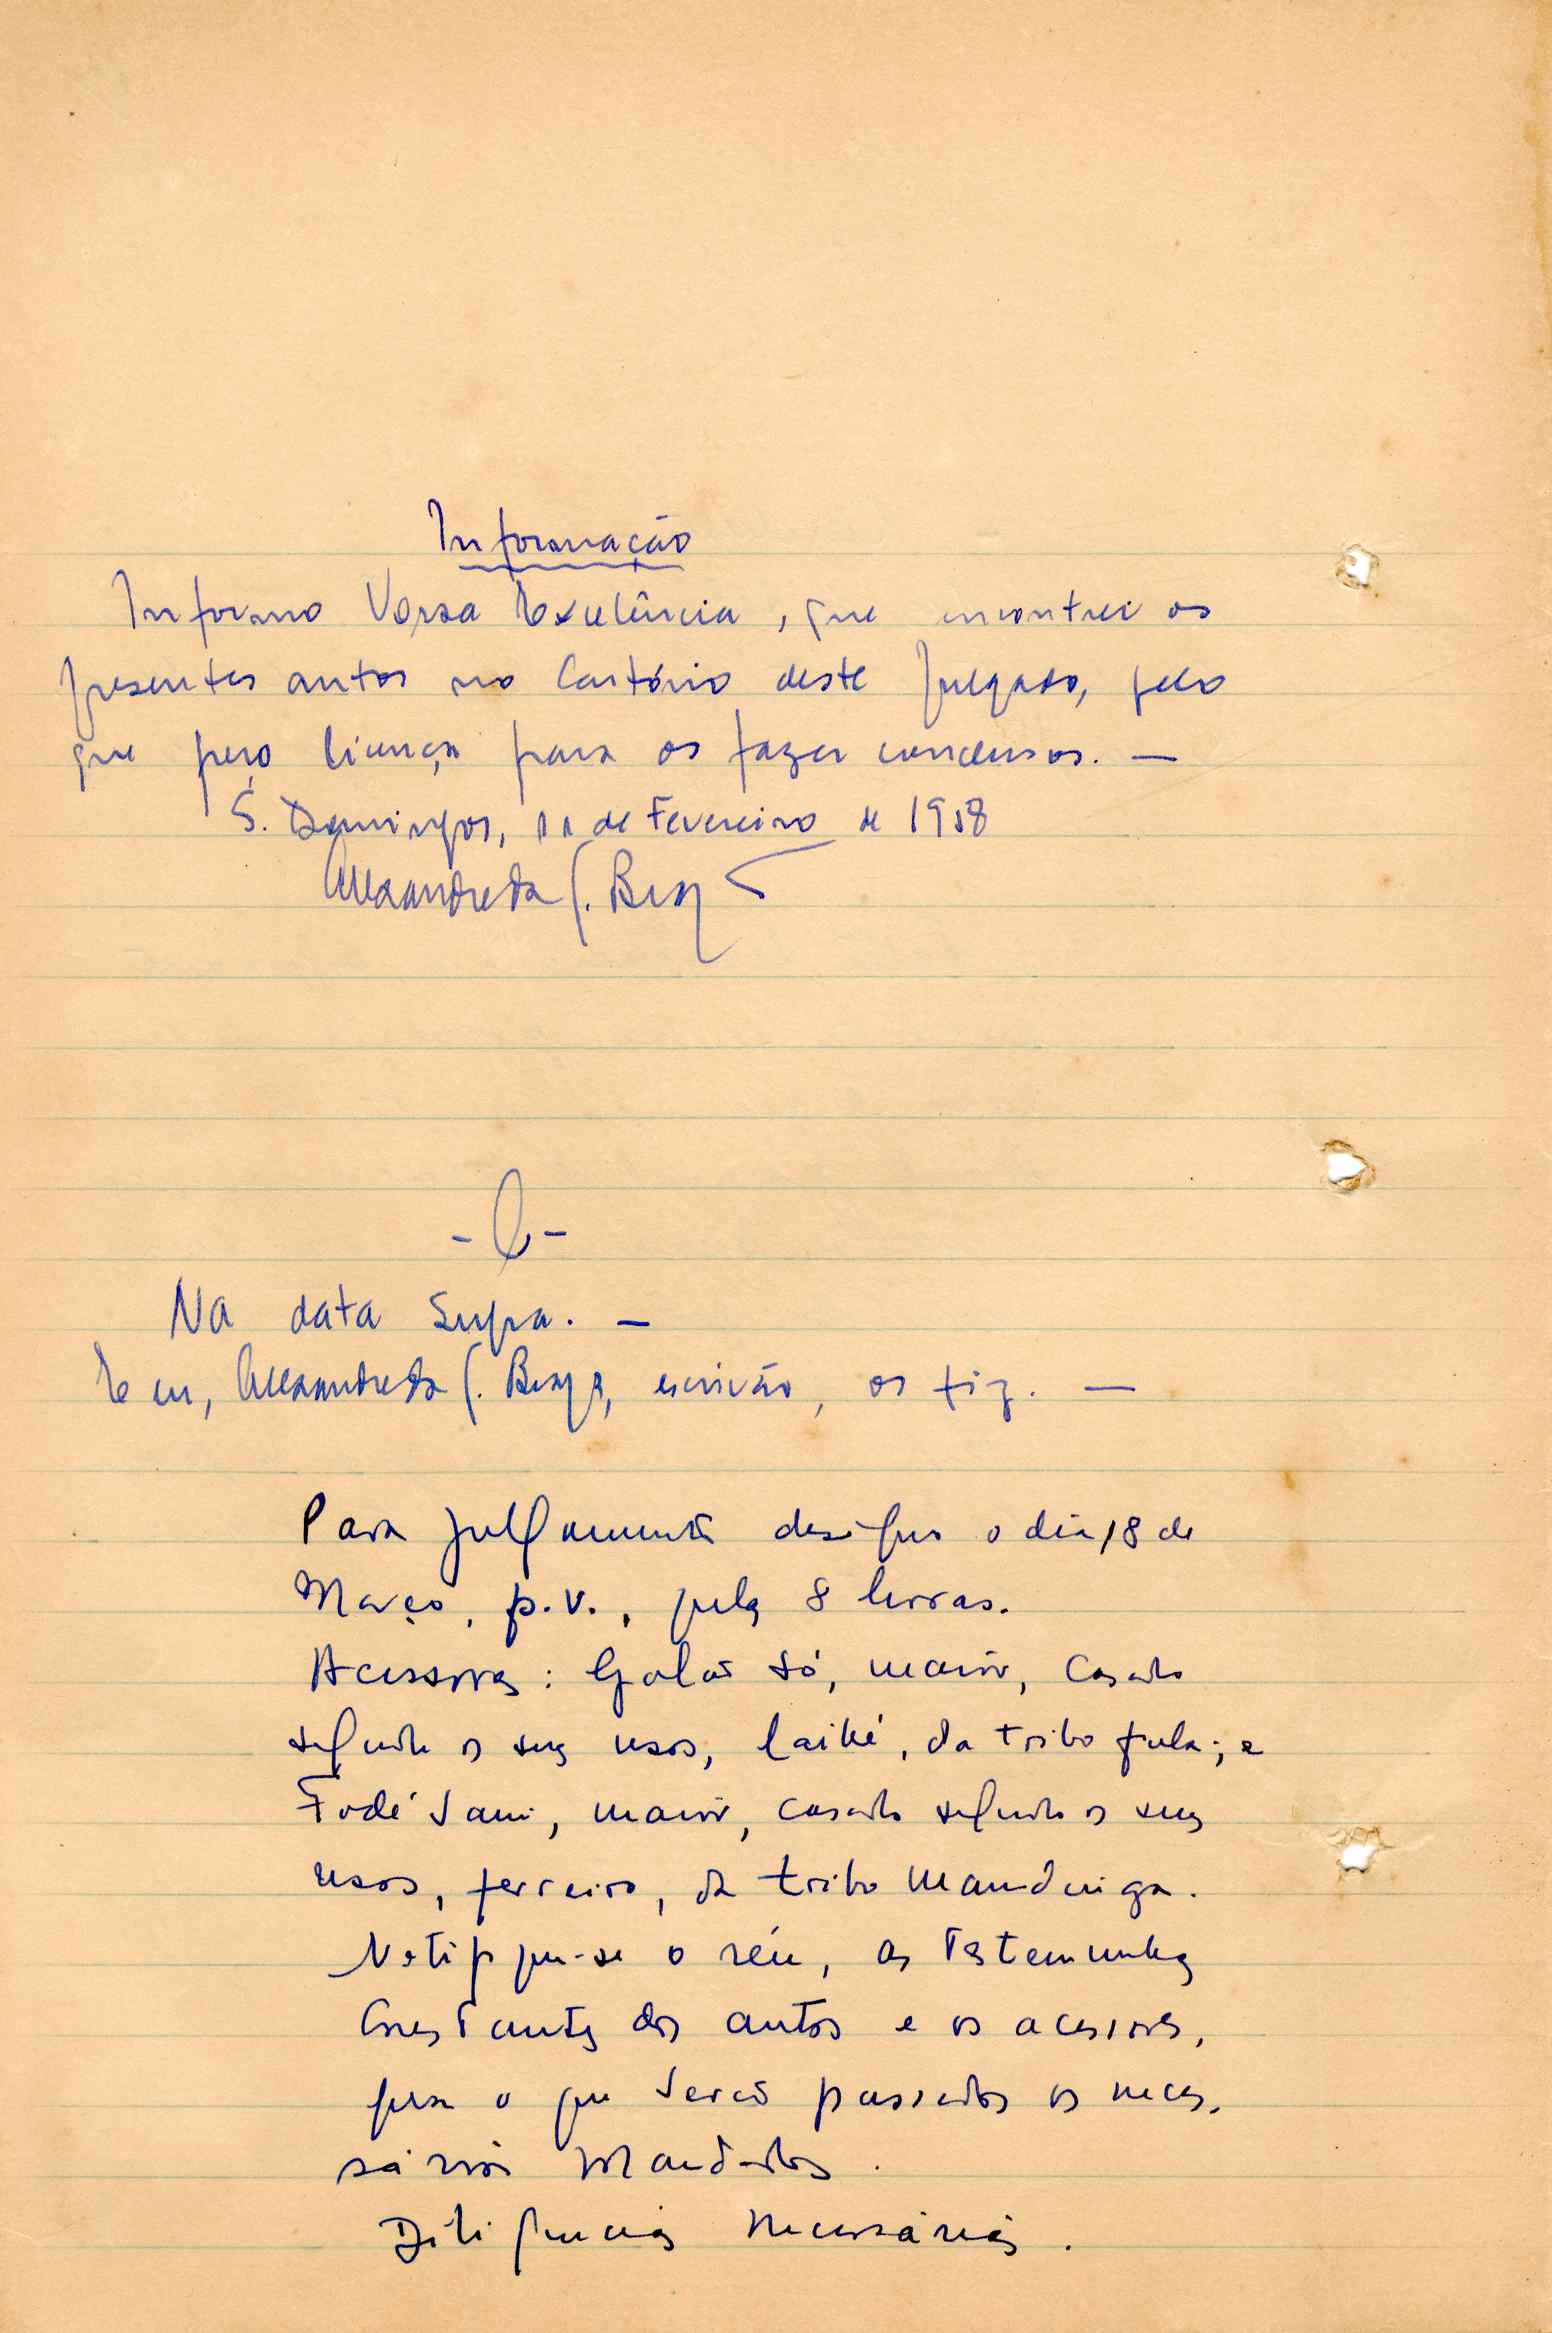 Informação
Informo Vossa Excelência, que encontrei os
presentes autos no Cartório deste Julgado, pelo
que peço licença para os fazer conclusos. —
S. Domingos, 11 de Fevereiro de 1958
Alexandre da S. Braga
- Cl -
Na data supra. —
E eu, Alexandre da S. Braga, escrivão, os fiz. —
Para julgamento designo o dia 18 de
Março, p.v., pelas 8 horas.
Acessores: Só, maior, casado
segundo os seus usos, da tribo fula; e
Fodé Sani, maior, casado segundo os seus
usos, ferreiro, da tribo mandinga.
Notifique-se o réu, as testemunhas
constantes dos autos e os acessores,
para o que serão passados os neces-
sários mandados.
Diligências necessárias.